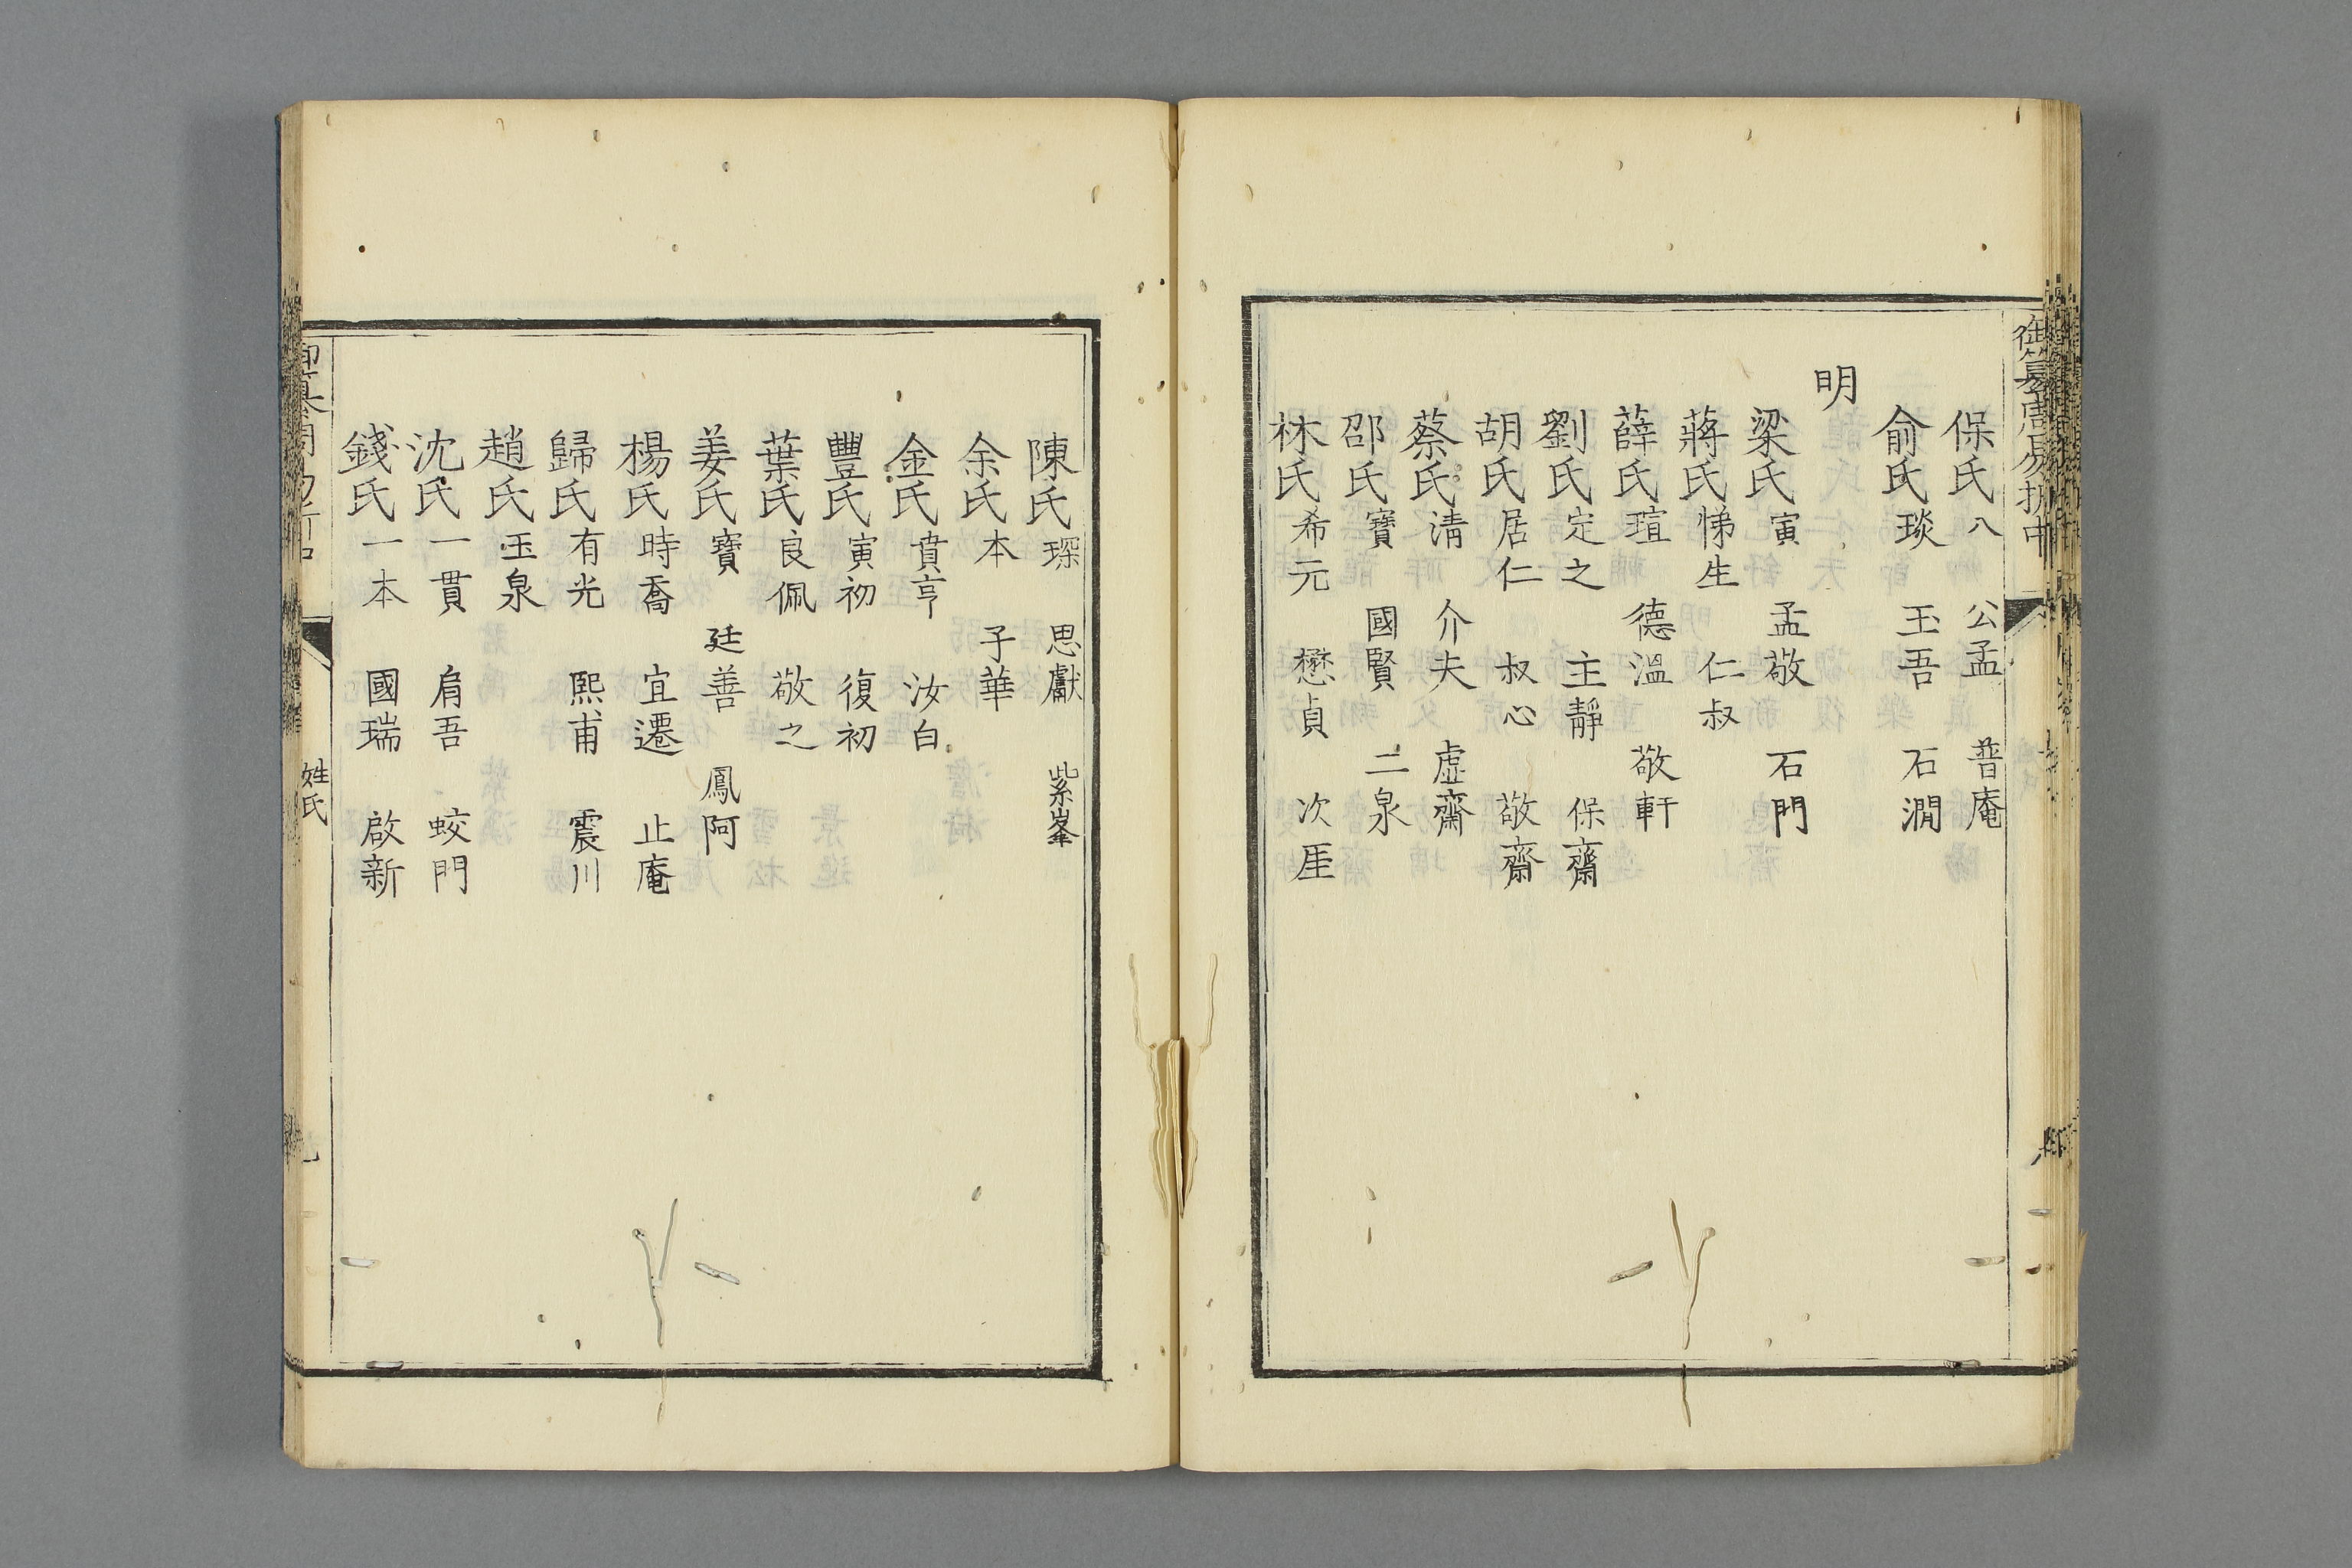 御纂周易折中
保氏八 公孟 普庵
俞氏琰 玉吾 石澗
明
梁氏寅 孟敬 石門
蔣氏悌生 仁叔
薛氏瑄 德溫 敬軒
劉氏定之 主靜 保齋
胡氏居仁 叔心 敬齋
蔡氏清 介夫 虛齋
邵氏寶 國賢 二泉
林氏希元 懋貞 次厓
陳氏琛 思獻 紫峯
余氏本 子華
金氏賁亨 汝白
豐氏寅初 復初
葉氏良佩 敬之
姜氏寶 廷善 鳳阿
楊氏時喬 宜遷 止庵
歸氏有光 熙甫 震川
趙氏玉泉
沈氏一貫 肩吾 蛟門
錢氏一本 國瑞 啟新
姓氏